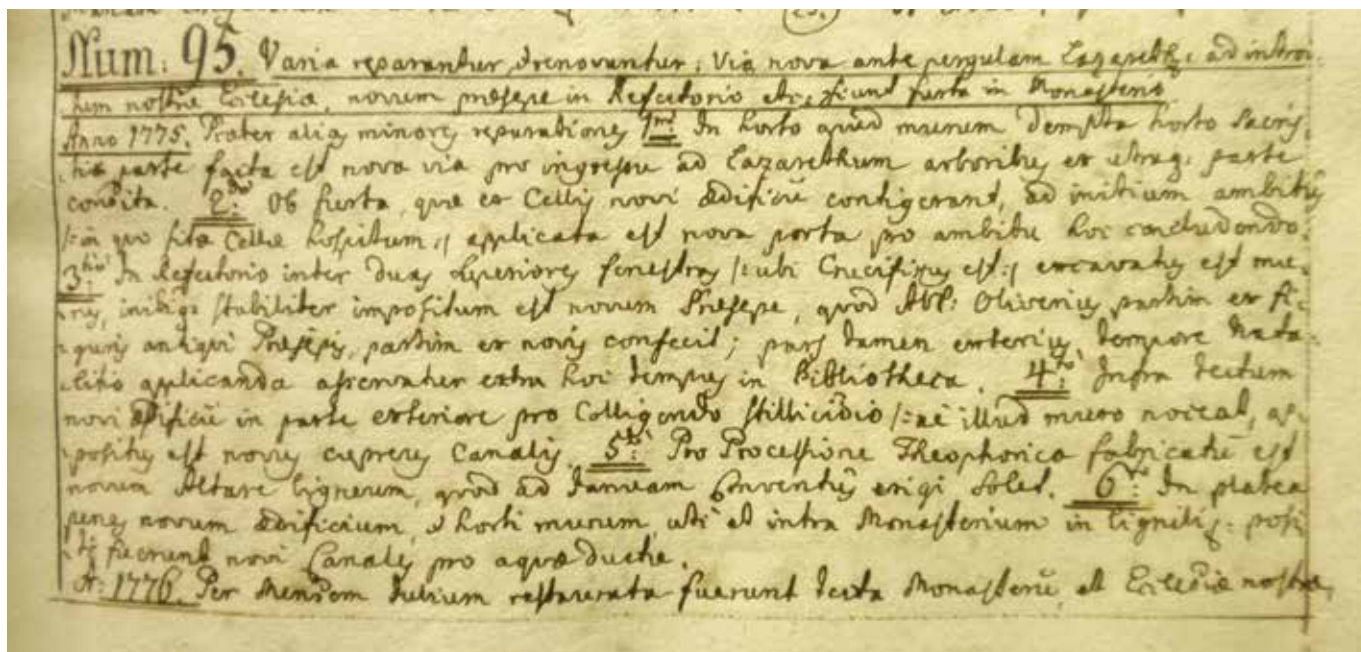 Num: 95. Varia reparantur, & renovantur; Via nova ante pergulam Lazareth: ad introi-
tum nostræ Ecclesiæ, novum præsepe in Refectorio etc: fiunt furta in Monasterio
Anno 1775. Præter alias minores reparationes 1mo In horto quoad murum dempta horto Sacris-
tiæ parte facta est nova via pro ingressu ad Lazarethum arboribus ex utraq: parte
condita. 2do: Ob furta, quæ ex Cellis novi ædificii contigerant, ad initium ambitus
/: in quo sitæ Cellæ hospitum :/ applicata est nova porta pro ambitu hoc concludendo.
3tio: In Refectorio inter duas superiores fenestras /: ubi Crucifixus est :/ excavatus est mu-
rus, ibiq: stabiliter impositum est novum Præsepe, quod Oliverius partim ex fi-
guris antiqui Præsepis, partim ex novis confecit; pars tamen exterius tempore Nata-
litio applicanda asservatur extra hoc tempus in Bibliotheca. 4to: Infra tectum
novi ædificii in parte exteriore pro colligendo stillicidio /: ne illud muro noceat, ap-
positus est novus cupreus Canalis. 5to: Pro Processione Theophorica fabricatū est
novum Altare ligneum, quod ad Januam Conventus erigi solet. 6to: In platea
penes novum ædificium, & horti murum, uti et intra Monasterium in lignilis: posi
ti fuerunt novi Canales pro aquæ ductu.
A: 1776. Per Mensem Julium restaurata fuerunt tecta Monasterii, et Ecclesiæ nostræ,